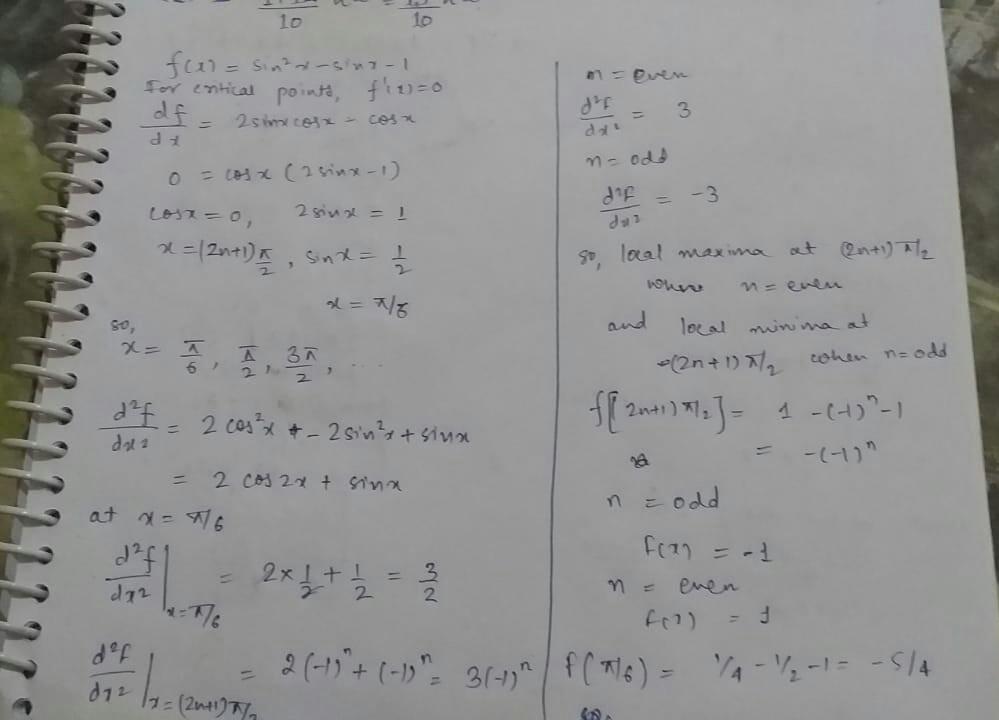 10
10
f(x) = sin²x - sinx - 1
For critical points, f'(x) = 0
df/dx = 2sinxcosx - cosx
0 = cosx (2sinx - 1)
cosx = 0, 2sinx = 1
x = (2n+1)π/2, sinx = 1/2
x = π/6
so,
x = π/6, π/2, 3π/2, ...
d²f/dx² = 2cos²x - 2sin²x + sinx
= 2 cos2x + sinx
at x = π/6
d²f/dx² |x=π/6 = 2×1/2 + 1/2 = 3/2
d²f/dx² |x=(2n+1)π/2 = 2(-1)ⁿ + (-1)ⁿ = 3(-1)ⁿ
n = even
d²f/dx² = 3
n = odd
d²f/dx² = -3
so, local maxima at (2n+1)π/2
where n = even
and local minima at
(2n+1)π/2 when n = odd
f[(2n+1)π/2] = 1 - (-1)ⁿ - 1
= -(-1)ⁿ
n = odd
f(x) = -1
n = even
f(x) = 1
f(π/6) = 1/4 - 1/2 - 1 = -5/4
so,